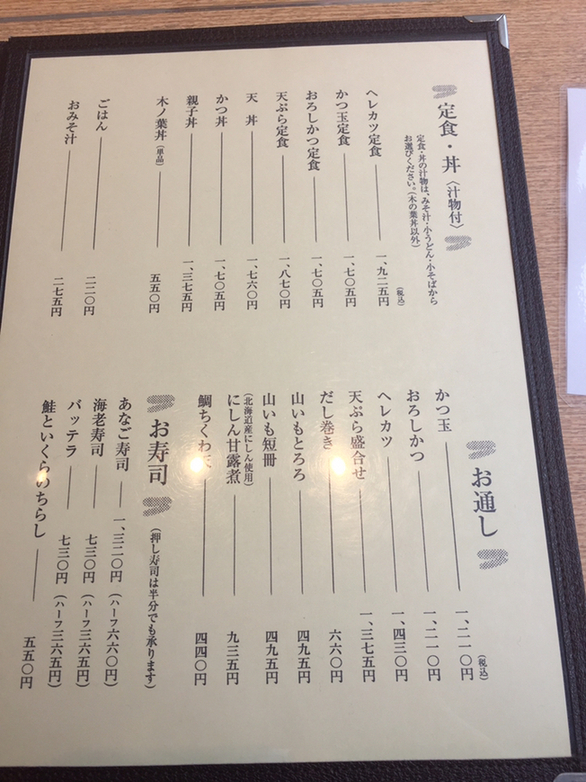 定食・丼〈汁物付〉
定食・丼の汁物は、みそ汁・小うどん・小そばから
お選びください。(木の葉丼以外)
(税込)
ヘレカツ定食 一、九二五円
かつ玉定食 一、七〇五円
おろしかつ定食 一、七〇五円
天ぷら定食 一、八七〇円
天丼 一、七六〇円
かつ丼 一、七〇五円
親子丼 一、三七五円
木ノ葉丼(単品) 五五〇円
ごはん 二二〇円
おみそ汁 二七五円
お通し
(税込)
かつ玉 一、二一〇円
おろしかつ 一、二一〇円
ヘレカツ 一、四三〇円
天ぷら盛合せ 一、三七五円
だし巻き 六六〇円
山いもとろろ 四九五円
山いも短冊 四九五円
(北海道産にしん使用)
にしん甘露煮 九三五円
鯛ちくわ天 四四〇円
お寿司
(押し寿司は半分でも承ります)
あなご寿司 一、三二〇円(ハーフ六六〇円)
海老寿司 七三〇円(ハーフ三六五円)
バッテラ 七三〇円(ハーフ三六五円)
鮭といくらのちらし 五五〇円